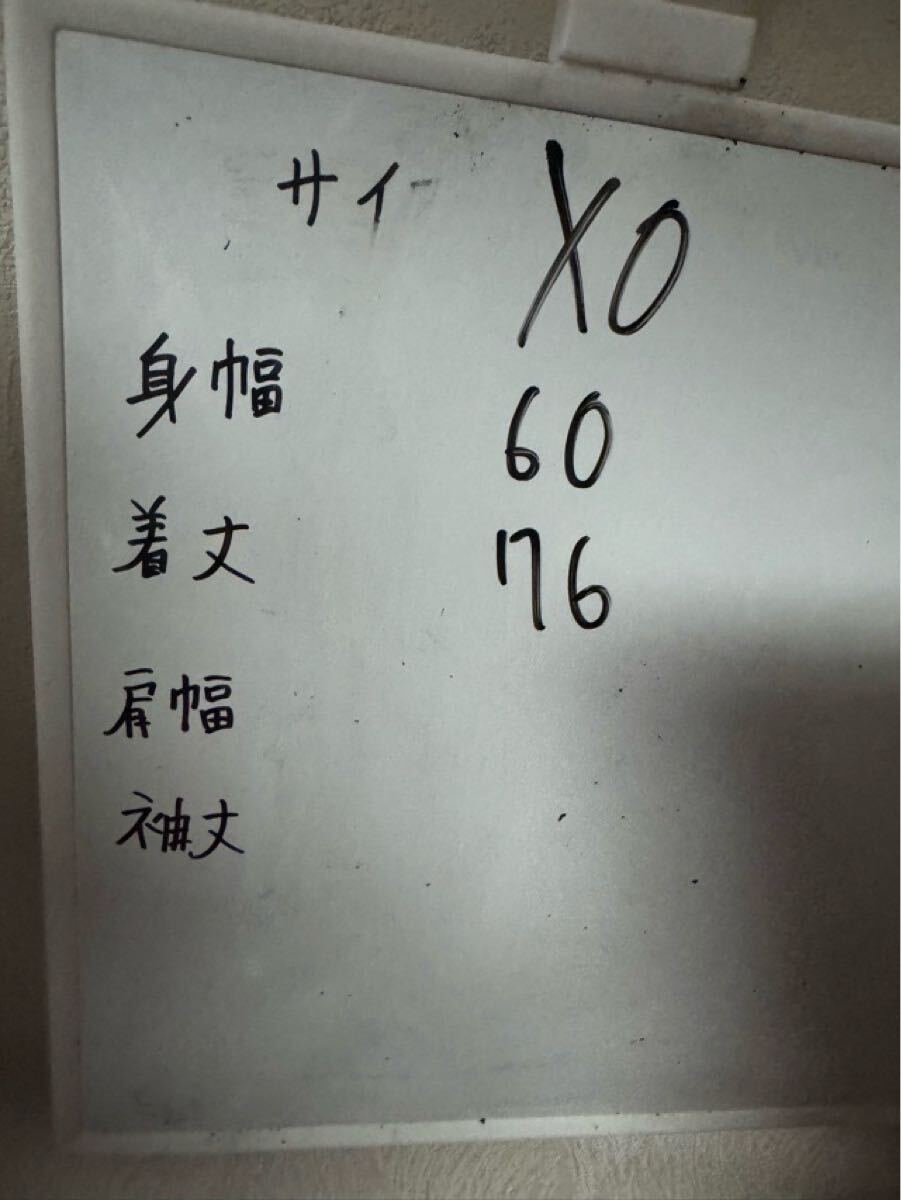 サイ XO
身幅 60
着丈 76
肩幅
袖丈